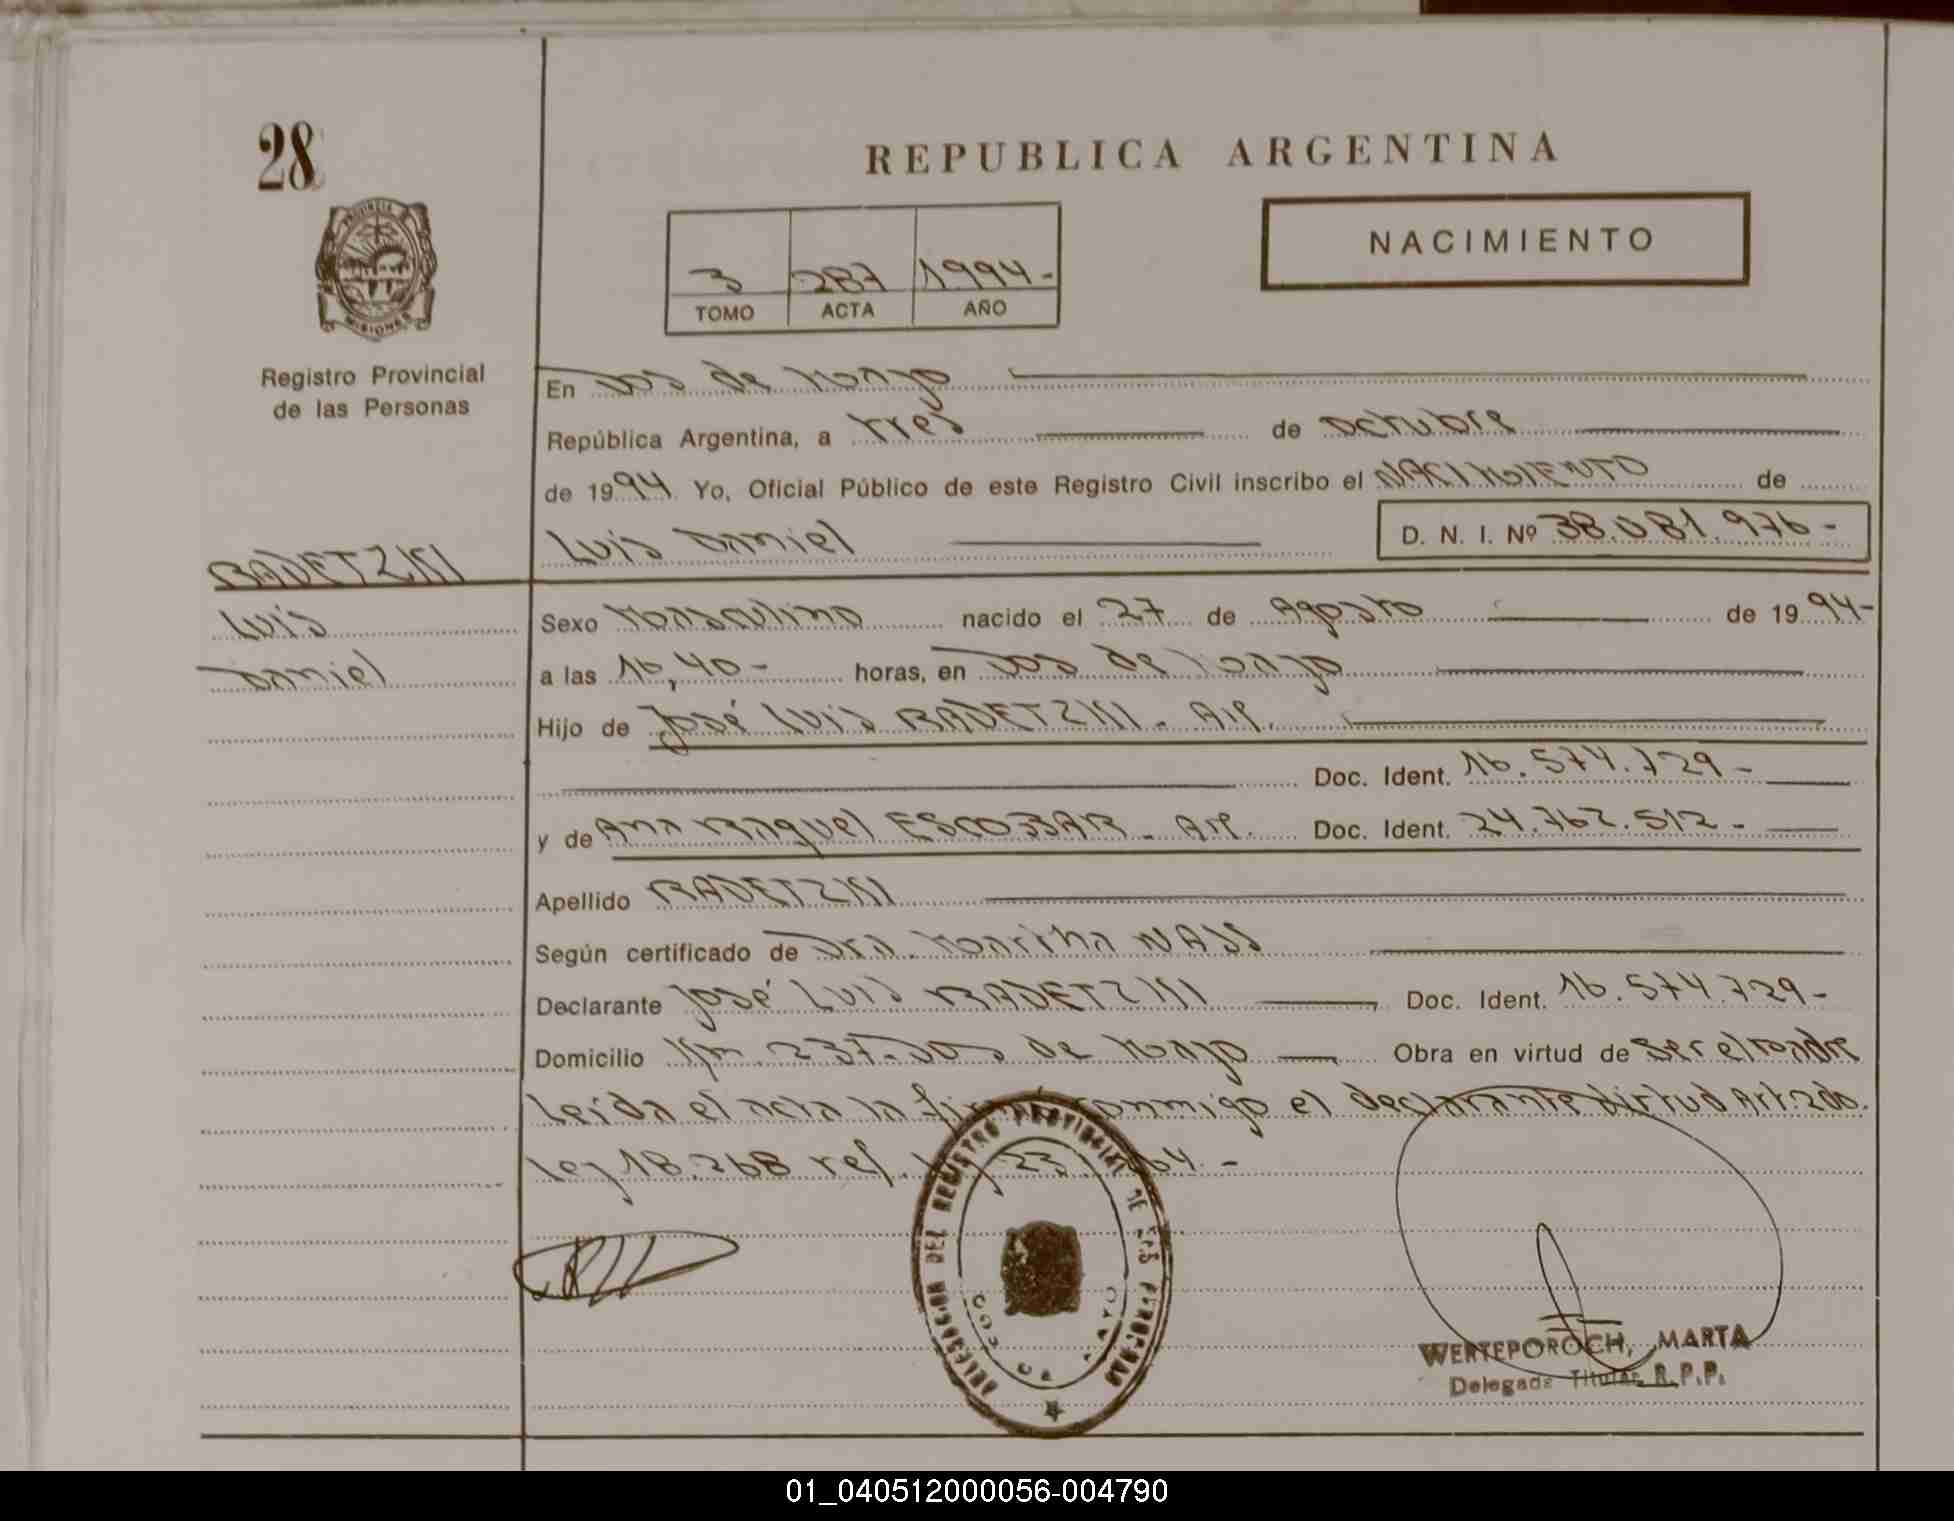 28
REPUBLICA ARGENTINA
NACIMIENTO
PROVINCIA DE
MISIONES
3 287 1994-
TOMO ACTA AÑO
Registro Provincial
de las Personas
En Dos de Mayo
República Argentina, a tres de octubre
de 1994 Yo, Oficial Público de este Registro Civil inscribo el NACIMIENTO de
Luis Daniel D. N. I. Nº 38.081.976-
RADETZKI
Luis
Daniel
Sexo Masculino nacido el 27 de Agosto de 1994-
a las 16,40- horas, en Dos de Mayo
Hijo de José Luis RADETZKI - Arg.
Doc. Ident. 16.574.729-
y de Ana Raquel ESCOBAR - Arg. Doc. Ident. 24.762.512-
Apellido RADETZKI
Según certificado de Dra. Martha NASS
Declarante José Luis RADETZKI Doc. Ident. 16.574.729-
Domicilio Km. 237-Dos de Mayo Obra en virtud de ser el padre
Leída el acta la firma conmigo el declarante virtud Art. 2do.
Ley 18.268 ref. Ley 23. 64.-
DELEGACION DEL REGISTRO PROVINCIAL DE LAS PERSONAS
DOS DE MAYO
WERTEPOROCH, MARTA
Delegada Titular R.P.P.
01_040512000056-004790